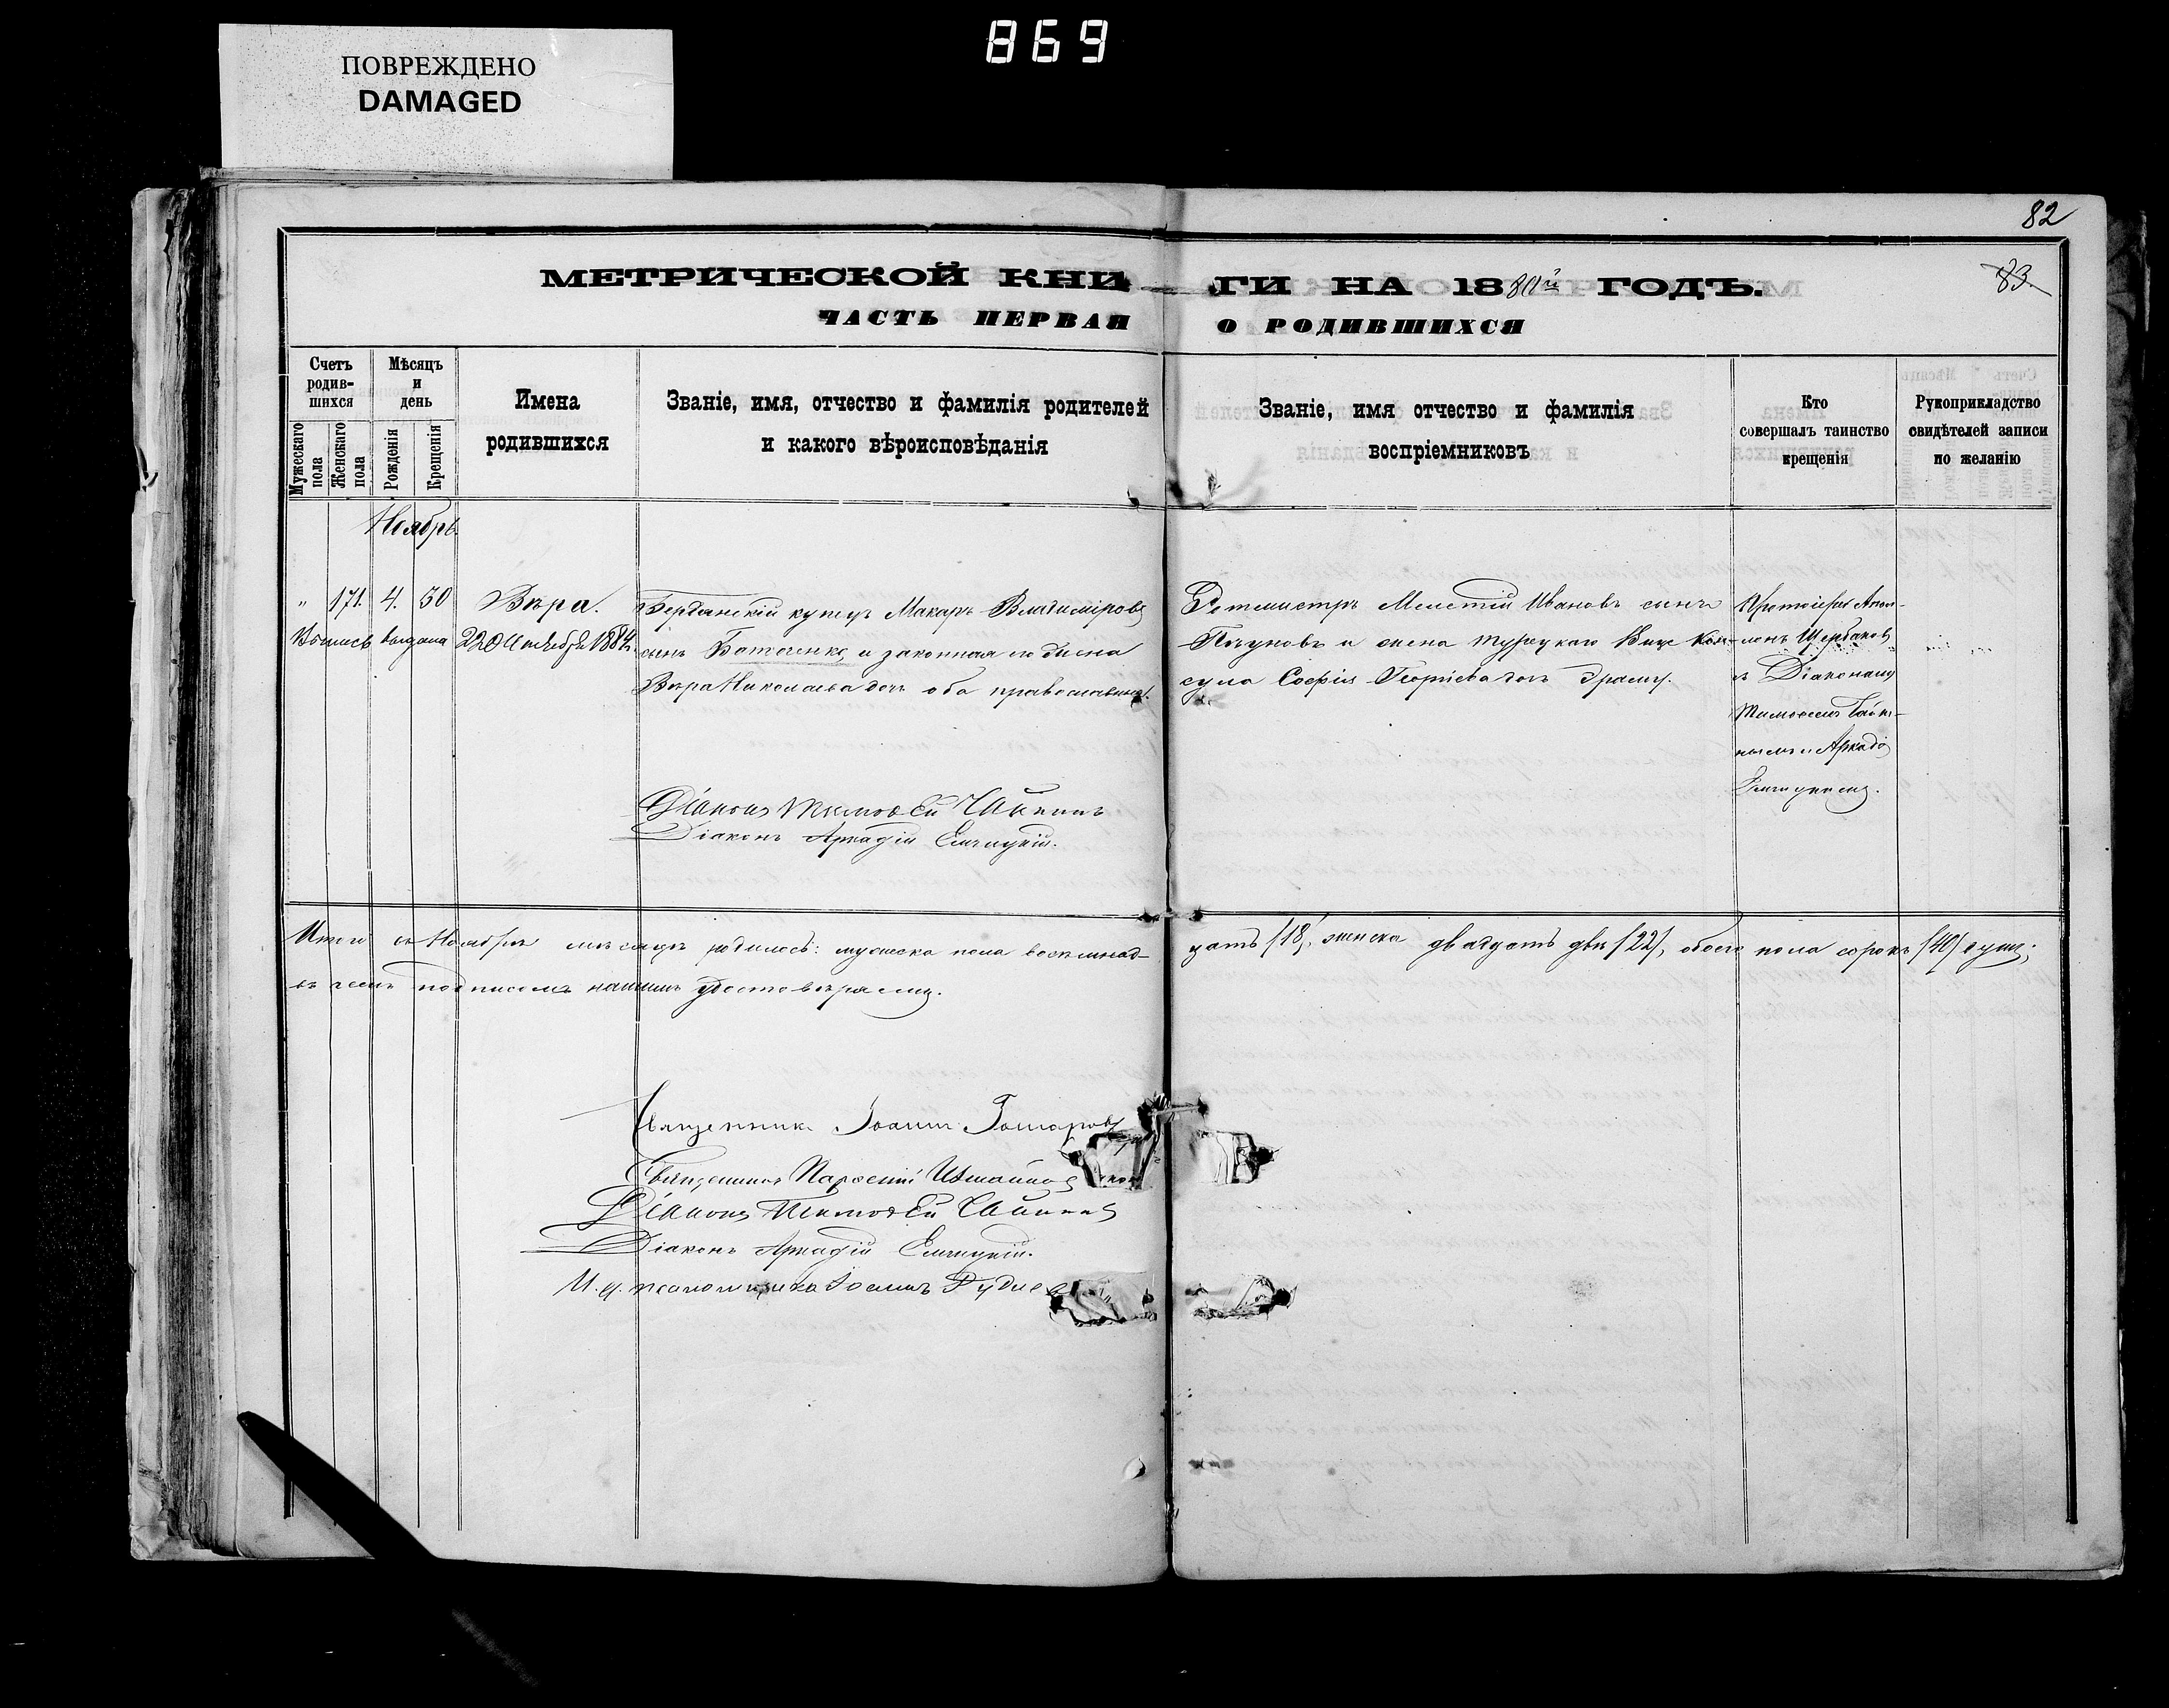 869
ПОВРЕЖДЕНО
DAMAGED
82
83
МЕТРИЧЕСКОЙ КНИ — ГИ НА 1880й ГОДЪ.
ЧАСТЬ ПЕРВАЯ О РОДИВШИХСЯ
Счетъ родив-шихся
Мужескаго пола
Женскаго пола
Мѣсяцъ и день
Рожденія
Крещенія
Имена
родившихся
Званіе, имя, отчество и фамилія родителей
и какого вѣроисповѣданія
Званіе, имя отчество и фамилія
воспріемниковъ
Кто
совершалъ таинство
крещенія
Рукоприкладство
свидѣтелей записи
по желанію
Ноябрь.
" 171. 4. 30 Вѣра.
Выпись выдана 22 Октября 1884
Бердянскій купецъ Макаръ Владиміровъ
сынъ и законная его жена
Вѣра Николаева дочь оба православные.
Ротмистръ Мелетій Ивановъ сынъ
и жена Турецкаго Вице Кон-
сула Софія Георгіева дочь
Протоіерей
Щербаковъ
съ Діаконами
Тимофеемъ Чайки-
нымъ и Аркадіе
Діаконъ Тимофей Чайкинъ
Діаконъ Аркадій Ельчицкій.
Итого въ Ноябрѣ мѣсяцѣ родилось: мужеска пола восемнад-
цать /18/, женска двадцать двѣ /22/, обоего пола сорокъ /40/ душъ;
въ чемъ подписомъ нашимъ удостовѣряемъ.
Священникъ Іоаннъ
Священникъ
Діаконъ Тимофей Чайкинъ
Діаконъ Аркадій Ельчицкій.
И. д. псаломщика Іоаннъ Рудиев